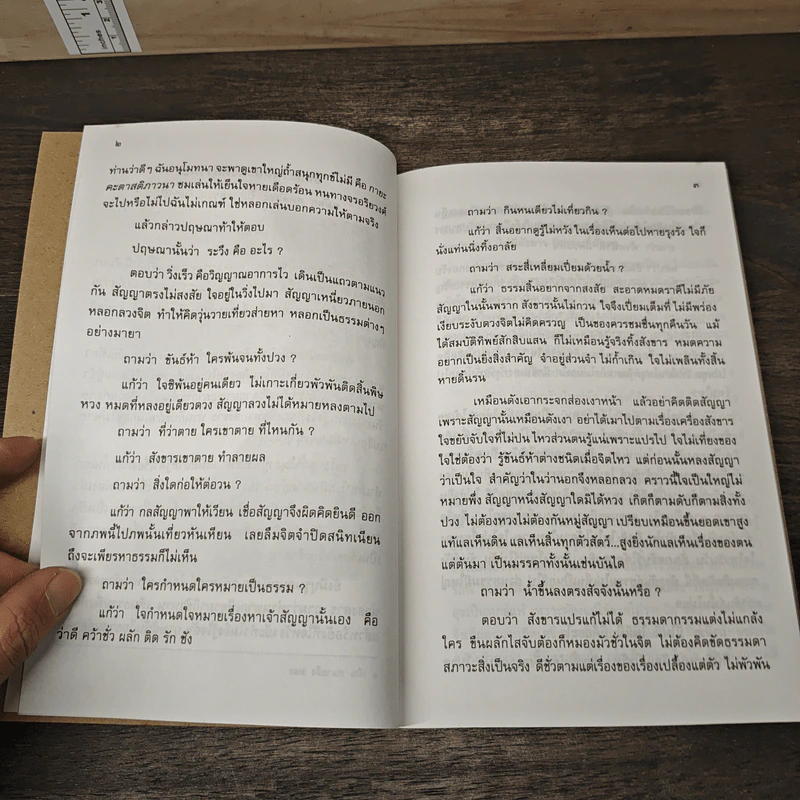 ๒
ท่านว่าดีๆ ฉันอนุโมทนา จะพาดูเขาใหญ่ถ้ำสนุกทุกข์ไม่มี คือ กายะ
คะตาสติภาวนา ชมเล่นให้เย็นใจหายเดือดร้อน หนทางจรอริยวงศ์
จะไปหรือไม่ไปฉันไม่เกณฑ์ ใช่หลอกเล่นบอกความให้ตามจริง
แล้วกล่าวปฤษณาท้าให้ตอบ
ปฤษณานั้นว่า ระวึง คือ อะไร ?
ตอบว่า วิ่งเร็ว คือวิญญาณอาการไว เดินเป็นแถวตามแนว
กัน สัญญาตรงไม่สงสัย ใจอยู่ในวิ่งไปมา สัญญาเหนี่ยวภายนอก
หลอกลวงจิต ทำให้คิดวุ่นวายเที่ยวส่ายหา หลอกเป็นธรรมต่างๆ
อย่างมายา
ถามว่า ขันธ์ห้า ใครพ้นจนทั้งปวง ?
แก้ว่า ใจซิพ้นอยู่คนเดียว ไม่เกาะเกี่ยวพัวพันติดสิ้นพิษ
หวง หมดที่หลงอยู่เดียวดวง สัญญาลวงไม่ได้หมายหลงตามไป
ถามว่า ที่ว่าตาย ใครเขาตาย ที่ไหนกัน ?
แก้ว่า สังขารเขาตาย ทำลายผล
ถามว่า สิ่งใดก่อให้ต่อวน ?
แก้ว่า กลสัญญาพาให้เวียน เชื่อสัญญาจึงผิดคิดยินดี ออก
จากภพนี้ไปภพนั้นเที่ยวหันเหียน เลยลืมจิตจำปิดสนิทเนียน
ถึงจะเพียรหาธรรมก็ไม่เห็น
ถามว่า ใครกำหนดใครหมายเป็นธรรม ?
แก้ว่า ใจกำหนดใจหมายเรื่องหาเจ้าสัญญานั้นเอง คือ
ว่าดี คว้าชั่ว ผลัก ติด รัก ชัง
๓
ถามว่า กินหนเดียวไม่เที่ยวกิน ?
แก้ว่า สิ้นอยากดูรู้ไม่หวัง ในเรื่องเห็นต่อไปหายรุงรัง ใจก็
นั่งแท่นนิ่งทิ้งอาลัย
ถามว่า สระสี่เหลี่ยมเปี่ยมด้วยน้ำ ?
แก้ว่า ธรรมสิ้นอยากจากสงสัย สะอาดหมดราคีไม่มีภัย
สัญญาในนั้นพราก สังขารนั้นไม่กวน ใจจึงเปี่ยมเต็มที่ ไม่มีพร่อง
เงียบระงับดวงจิตไม่คิดครวญ เป็นของควรชมชื่นทุกคืนวัน แม้
ได้สมบัติทิพย์สักสิบแสน ก็ไม่เหมือนรู้จริงทิ้งสังขาร หมดความ
อยากเป็นยิ่งสิ่งสำคัญ จำอยู่ส่วนจำ ไม่ก้ำเกิน ใจไม่เพลินทั้งสิ้น
หายดิ้นรน
เหมือนดังเอากระจกส่องเงาหน้า แล้วอย่าคิดติดสัญญา
เพราะสัญญานั้นเหมือนดังเงา อย่าได้เมาไปตามเรื่องเครื่องสังขาร
ใจขยับจับใจที่ไม่ปน ไหวส่วนตนรู้แน่เพราะแปรไป ใจไม่เที่ยงของ
ใจใช่ต้องว่า รู้ขันธ์ห้าต่างชนิดเมื่อจิตไหว แต่ก่อนนั้นหลงสัญญา
ว่าเป็นใจ สำคัญว่าในว่านอกจึงหลอกลวง คราวนี้ใจเป็นใหญ่ไม่
หมายพึ่ง สัญญาหนึ่งสัญญาใดมิได้หวง เกิดก็ตามดับก็ตามสิ่งทั้ง
ปวง ไม่ต้องหวงไม่ต้องกันหมู่สัญญา เปรียบเหมือนขึ้นยอดเขาสูง
แท้แลเห็นดิน แลเห็นสิ้นทุกตัวสัตว์...สูงยิ่งนักแลเห็นเรื่องของตน
แต่ต้นมา เป็นมรรคาทั้งนั้นเช่นบันได
ถามว่า น้ำขึ้นลงตรงสัจจังนั้นหรือ ?
ตอบว่า สังขารแปรแก้ไม่ได้ ธรรมดากรรมแต่งไม่แกล้ง
ใคร ขืนผลักไสจับต้องก็หมองมัวชั่วในจิต ไม่ต้องคิดขัดธรรมดา
สภาวะสิ่งเป็นจริง ดีชั่วตามแต่เรื่องของเรื่องเปลื้องแต่ตัว ไม่พัวพัน